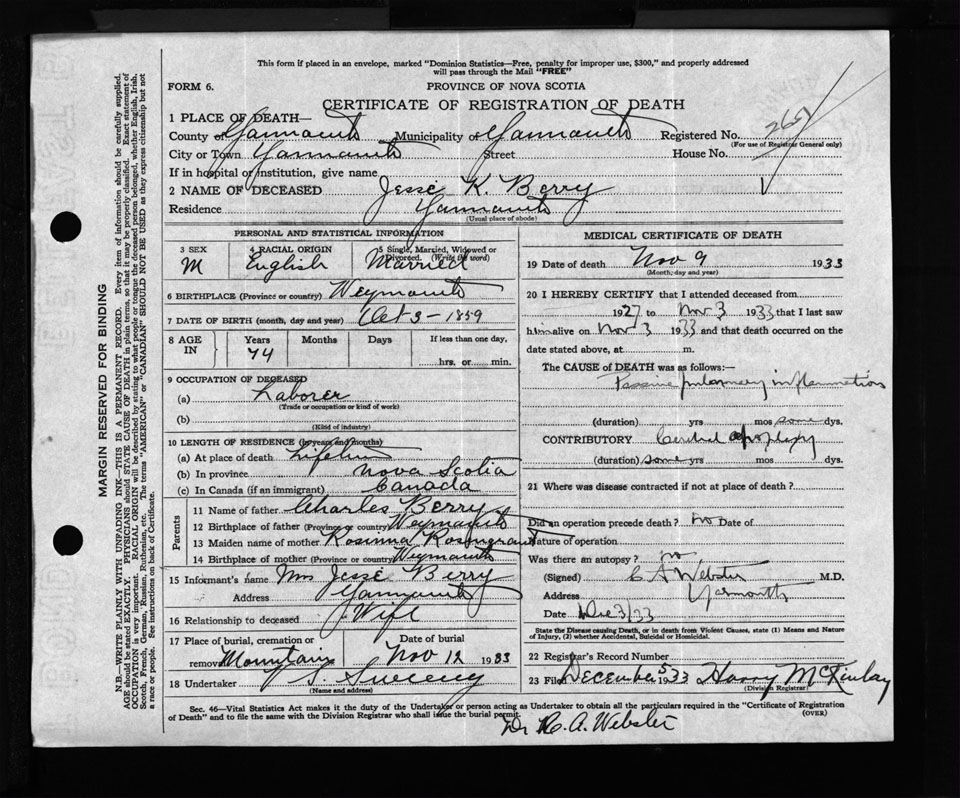 This form if placed in an envelope, marked "Dominion Statistics—Free, penalty for improper use, $300," and properly addressed
will pass through the Mail "FREE"
FORM 6.
PROVINCE OF NOVA SCOTIA
CERTIFICATE OF REGISTRATION OF DEATH
1 PLACE OF DEATH—
County of Yarmouth Municipality of Yarmouth Registered No.
(For use of Registrar General only)
City or Town Yarmouth Street House No.
If in hospital or institution, give name
2 NAME OF DECEASED Jesse K. Berry
Residence Yarmouth
(Usual place of abode)
PERSONAL AND STATISTICAL INFORMATION
3 SEX M
4 RACIAL ORIGIN English
5 Single, Married, Widowed or Divorced. (Write the word) Married
6 BIRTHPLACE (Province or country) Weymouth
7 DATE OF BIRTH (month, day and year) Oct 3-1859
8 AGE IN Years Months Days If less than one day,
74 hrs. or min.
9 OCCUPATION OF DECEASED
(a) Laborer
(Trade or occupation or kind of work)
(b)
(Kind of industry)
10 LENGTH OF RESIDENCE (in years and months)
(a) At place of death Lifetime
(b) In province Nova Scotia
(c) In Canada (if an immigrant) Canada
Parents
11 Name of father Charles Berry
12 Birthplace of father (Province or country) Weymouth
13 Maiden name of mother Rosinna
14 Birthplace of mother (Province or country) Weymouth
15 Informant's name Mrs Jesse Berry
Address Yarmouth
16 Relationship to deceased Wife
17 Place of burial, cremation or removal Mountain Date of burial Nov 12 1933
18 Undertaker Sweeny
(Name and address)
MEDICAL CERTIFICATE OF DEATH
19 Date of death Nov 9 1933
(Month, day and year)
20 I HEREBY CERTIFY that I attended deceased from
1927 to Nov 3 1933 that I last saw
him alive on Nov 3 1933 and that death occurred on
date stated above, at m.
The CAUSE of DEATH was as follows:—
Passive pulmonary inflammation
(duration) yrs mos some dys.
CONTRIBUTORY apoplexy
(duration) some yrs mos dys.
21 Where was disease contracted if not at place of death?
Did an operation precede death? no Date of
Nature of operation
Was there an autopsy? no
(Signed) C A Webster M.D.
Address Yarmouth
Date Dec 3/33
State the Disease causing Death, or in death from Violent Causes, state (1) Means and Nature
of Injury, (2) whether Accidental, Suicidal or Homicidal.
22 Registrar's Record Number
23 Filed December 5 1933 Harry McKinlay
(Division Registrar)
Sec. 46—Vital Statistics Act makes it the duty of the Undertaker or person acting as Undertaker to obtain all the particulars required in the "Certificate of Registration
of Death" and to file the same with the Division Registrar who shall issue the burial permit. (OVER)
Dr A. Webster
MARGIN RESERVED FOR BINDING
N.B.—WRITE PLAINLY WITH UNFADING INK—THIS IS A PERMANENT RECORD. Every item of information should be carefully supplied.
AGE should be stated EXACTLY. PHYSICIANS should STATE CAUSE OF DEATH in plain terms, so that it may be properly classified. Exact statement of
OCCUPATION is very important. RACIAL ORIGIN will be described by stating to what people or tongue the deceased person belonged, whether English, Irish,
Scotch, French, German, Russian, Ruthenian, etc. The terms "AMERICAN" or "CANADIAN" SHOULD NOT BE USED as they express citizenship but not
a race or people. See instructions on back of Certificate.